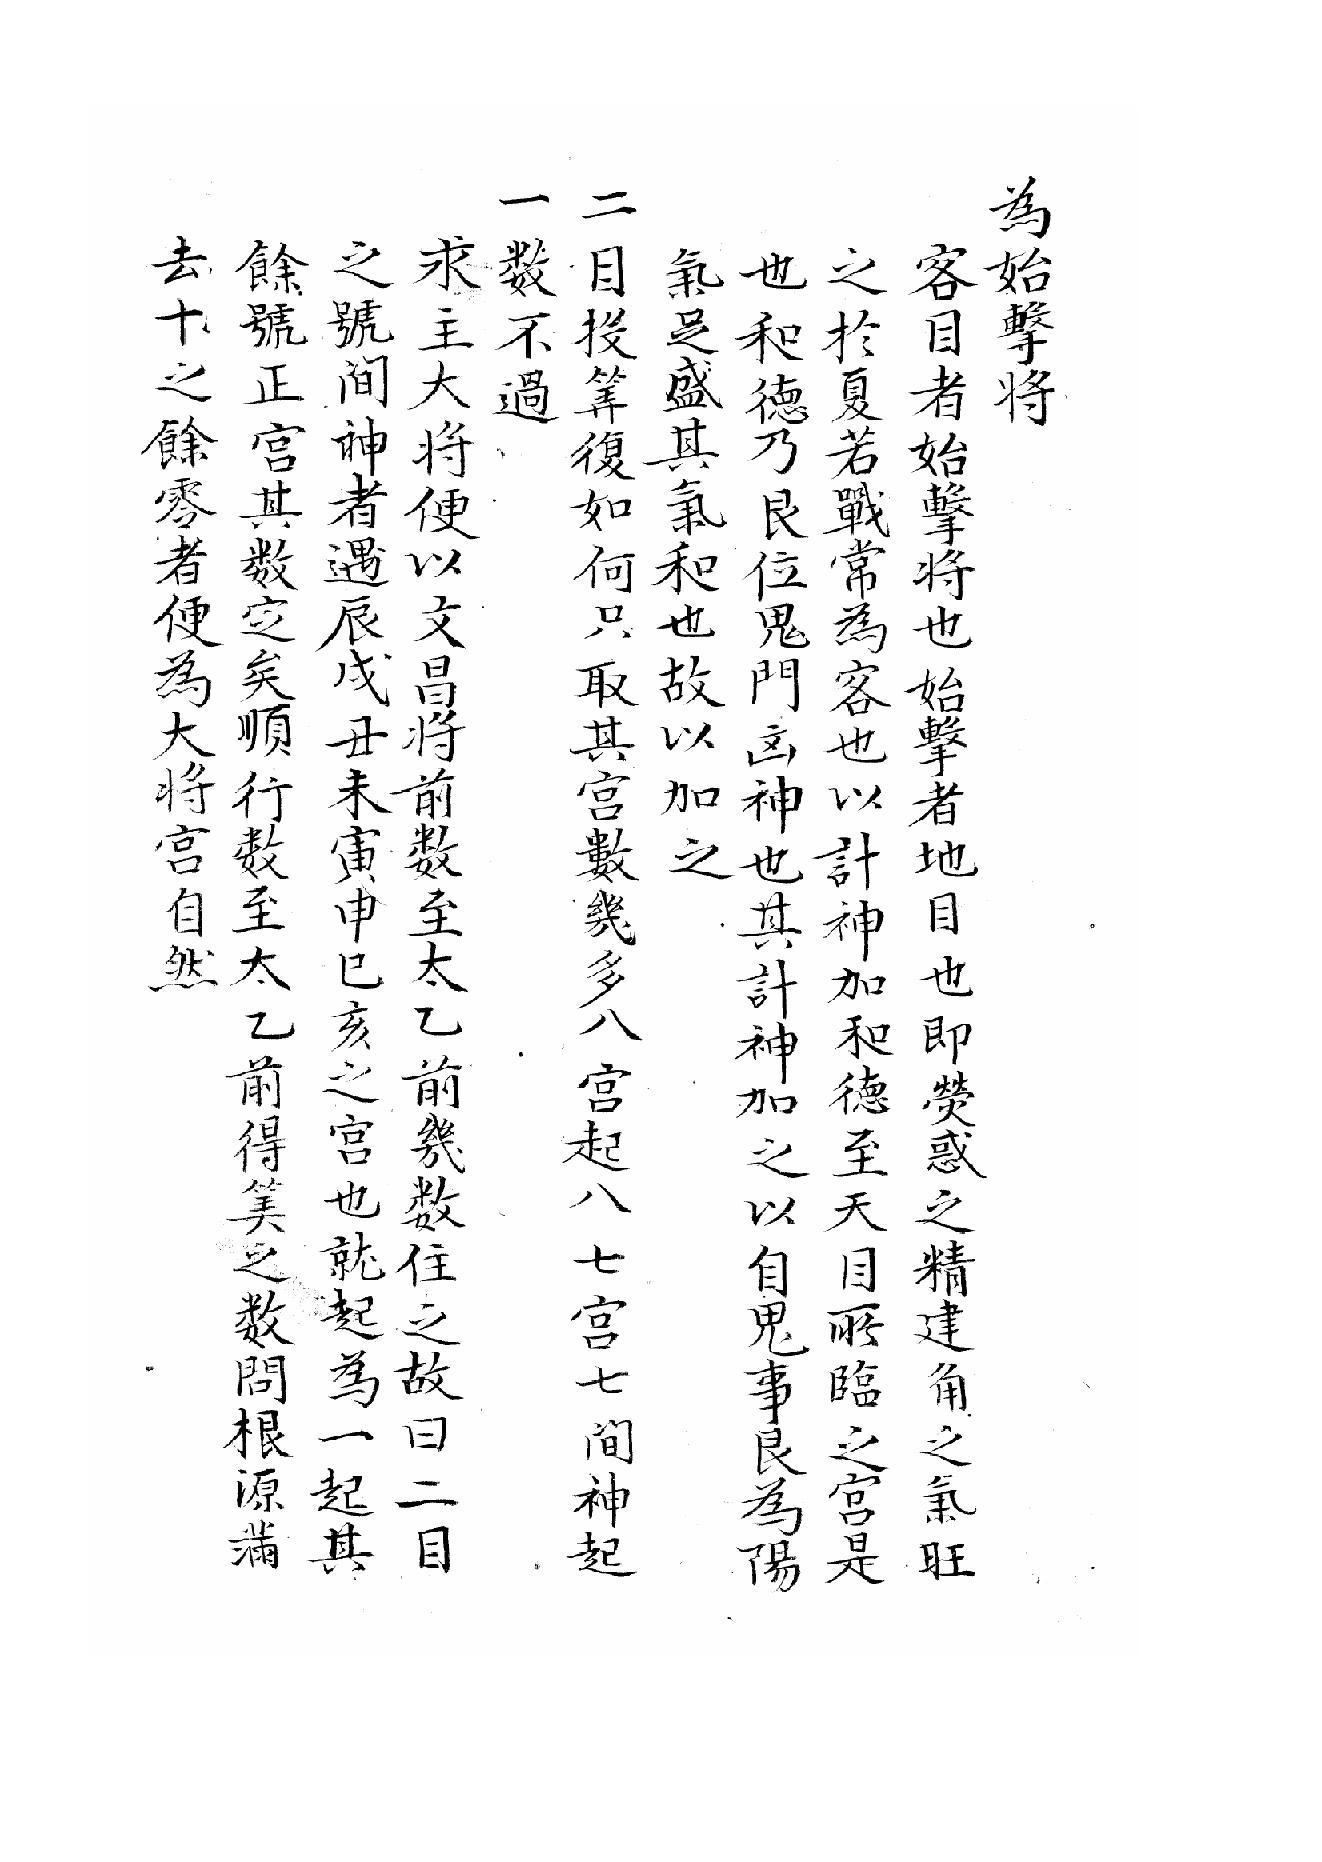 為始擊将
客目者始擊将也始擊者地目也即熒惑之精建角之氣旺
之於夏若戰常為客也以計神加和德至天目所臨之宮是
也和德乃艮位鬼門凶神也其計神加之以自鬼事艮為陽
氣足盛其氣和也故以加之
二目投筭復如何只取其宮數幾多八宮起八七宮七間神起
一数不過
求主大将便以文昌将前数至太乙前幾数住之故曰二目
之號間神者遇辰戌丑未寅申巳亥之宮也就起為一起其
餘號正宮其数定矣順行数至太乙前得筭之数問根源滿
去十之餘零者便為大将宮自然